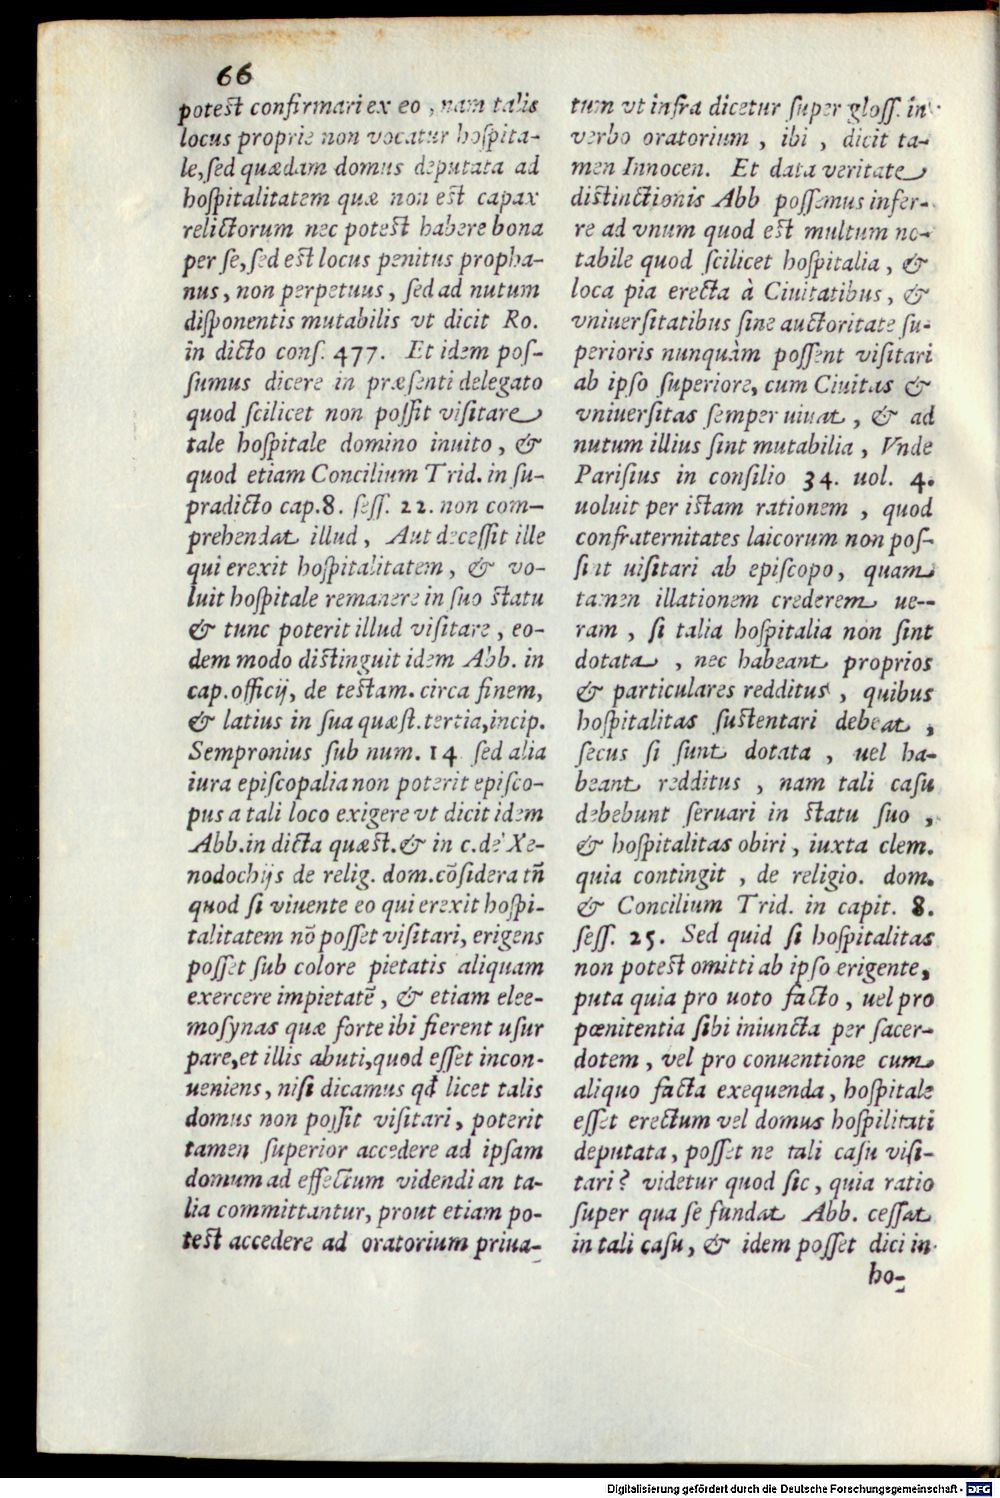 66
potest confirmari ex eo, nam talis
locus proprie non vocatur hospita-
le, sed quædam domus deputata ad
hospitalitatem quæ non est capax
relictorum nec potest habere bona
per se, sed est locus penitus propha-
nus, non perpetuus, sed ad nutum
disponentis mutabilis vt dicit Ro.
in dicto cons. 477. Et idem pos-
sumus dicere in præsenti delegato
quod scilicet non possit visitare
tale hospitale domino inuito, &
quod etiam Concilium Trid. in su-
pradicto cap. 8. sess. 22. non com-
prehendat illud, Aut decessit ille
qui erexit hospitalitatem, & vo-
luit hospitale remanere in suo statu
& tunc poterit illud visitare, eo-
dem modo distinguit idem Abb. in
cap. officij, de testam. circa finem,
& latius in sua quæst. tertia, incip.
Sempronius sub num. 14 sed alia
iura episcopalia non poterit episco-
pus a tali loco exigere vt dicit idem
Abb. in dicta quæst. & in c. de Xe-
nodochijs de relig. dom. cōsidera tñ
quod si viuente eo qui erexit hospi-
talitatem nō posset visitari, erigens
posset sub colore pietatis aliquam
exercere impietatē, & etiam elee-
mosynas quæ forte ibi fierent usur
pare, et illis abuti, quod esset incon-
ueniens, nisi dicamus qđ licet talis
domus non possit visitari, poterit
tamen superior accedere ad ipsam
domum ad effectum videndi an ta-
lia committantur, prout etiam po-
test accedere ad oratorium priua-
tum vt infra dicetur super gloss. in
verbo oratorium, ibi, dicit ta-
men Innocen. Et data veritate
distinctionis Abb possemus infer-
re ad vnum quod est multum no-
tabile quod scilicet hospitalia, &
loca pia erecta à Ciuitatibus, &
vniuersitatibus sine auctoritate su-
perioris nunquàm possent visitari
ab ipso superiore, cum Ciuitas &
vniuersitas semper uiuat, & ad
nutum illius sint mutabilia, Vnde
Parisius in consilio 34. uol. 4.
uoluit per istam rationem, quod
confraternitates laicorum non pos-
sint uisitari ab episcopo, quam
tamen illationem crederem ue--
ram, si talia hospitalia non sint
dotata, nec habeant proprios
& particulares redditus, quibus
hospitalitas sustentari debeat,
secus si sunt dotata, uel ha-
beant redditus, nam tali casu
debebunt seruari in statu suo,
& hospitalitas obiri, iuxta clem.
quia contingit, de religio. dom.
& Concilium Trid. in capit. 8.
sess. 25. Sed quid si hospitalitas
non potest omitti ab ipso erigente,
puta quia pro uoto facto, uel pro
pœnitentia sibi iniuncta per sacer-
dotem, vel pro conuentione cum
aliquo facta exequenda, hospitale
esset erectum vel domus hospilitati
deputata, posset ne tali casu visi-
tari? videtur quod sic, quia ratio
super qua se fundat Abb. cessat
in tali casu, & idem posset dici in
ho-
Digitalisierung gefördert durch die Deutsche Forschungsgemeinschaft - DFG